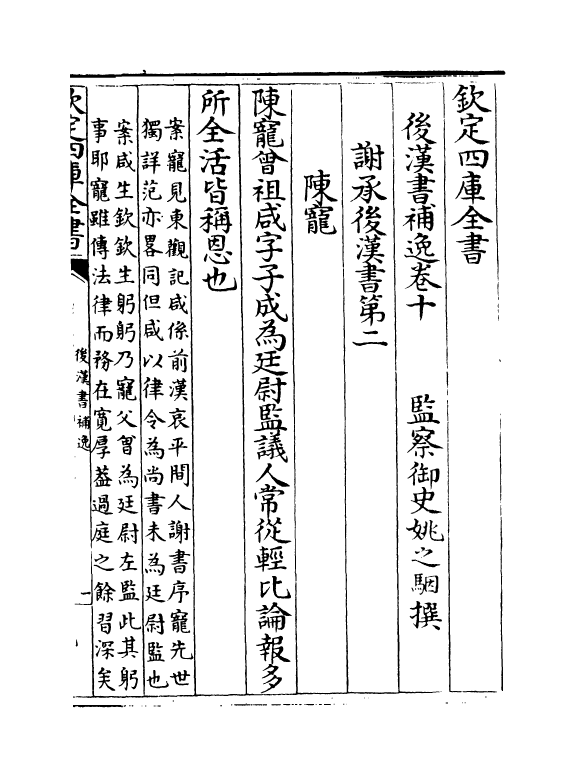 欽定四庫全書
後漢書補逸卷十　監察御史姚之駰撰
謝承後漢書第二
陳寵
陳寵曾祖咸字子成為廷尉監議人常從輕比論報多
所全活皆稱恩也
案寵見東觀記咸係前漢哀平間人謝書序寵先世
獨詳范亦畧同但咸以律令為尚書未為廷尉監也
案咸生欽欽生躬躬乃寵父曽為廷尉左監此其躬
事耶寵雖傳法律而務在寛厚葢過庭之餘習深矣
欽定四庫全書
後漢書補逸
一